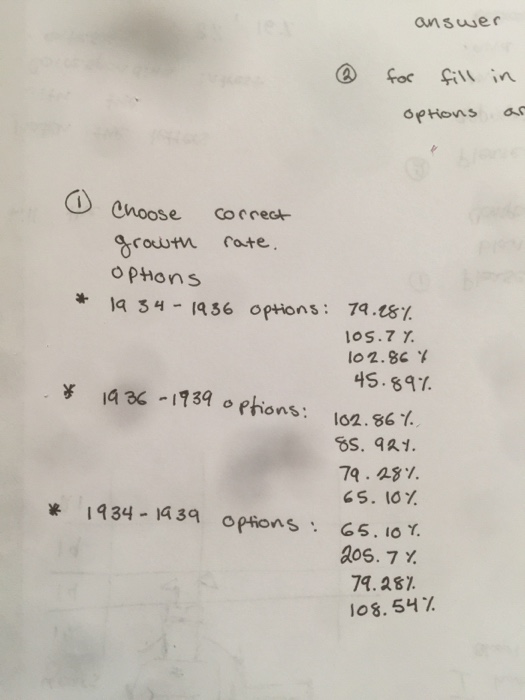 answer
② for fill in
options
① Choose correct
growth rate.
options
* 1934-1936 options: 79.28%
105.7%
102.86%
45.89%
* 1936-1939 options:
102.86%
85.92%
79.28%
65.10%
* 1934-1939 options:
65.10%
205.7%
79.28%
108.54%